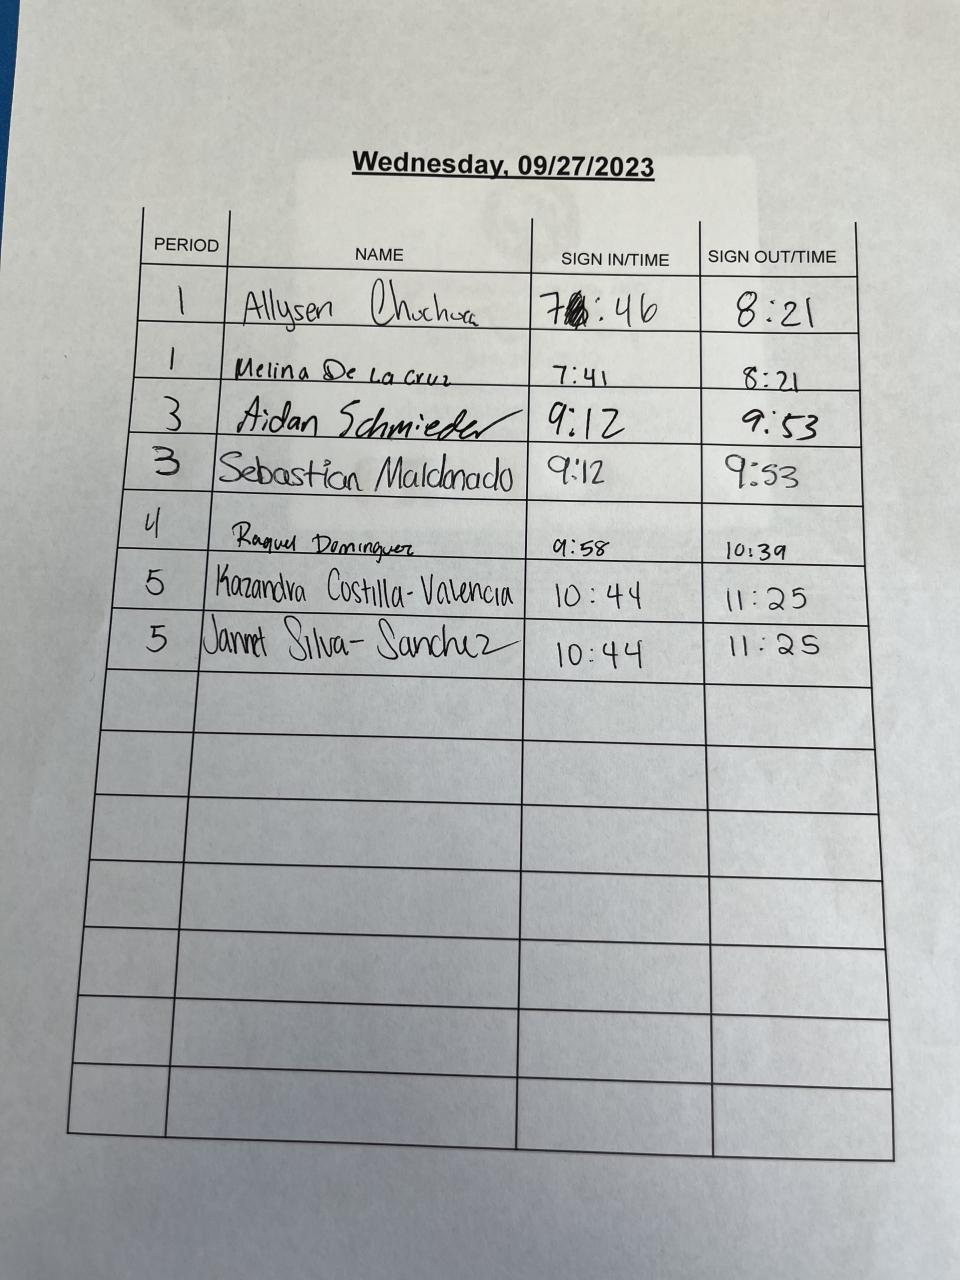 Wednesday, 09/27/2023
PERIOD NAME SIGN IN/TIME SIGN OUT/TIME
1 Allysen 7:46 8:21
1 Melina De La Cruz 7:41 8:21
3 Aidan Schmieder 9:12 9:53
3 Sebastian Maldonado 9:12 9:53
4 Raquel Dominguez 9:58 10:39
5 Kazandra Costilla-Valencia 10:44 11:25
5 Jannet Silva-Sanchez 10:44 11:25